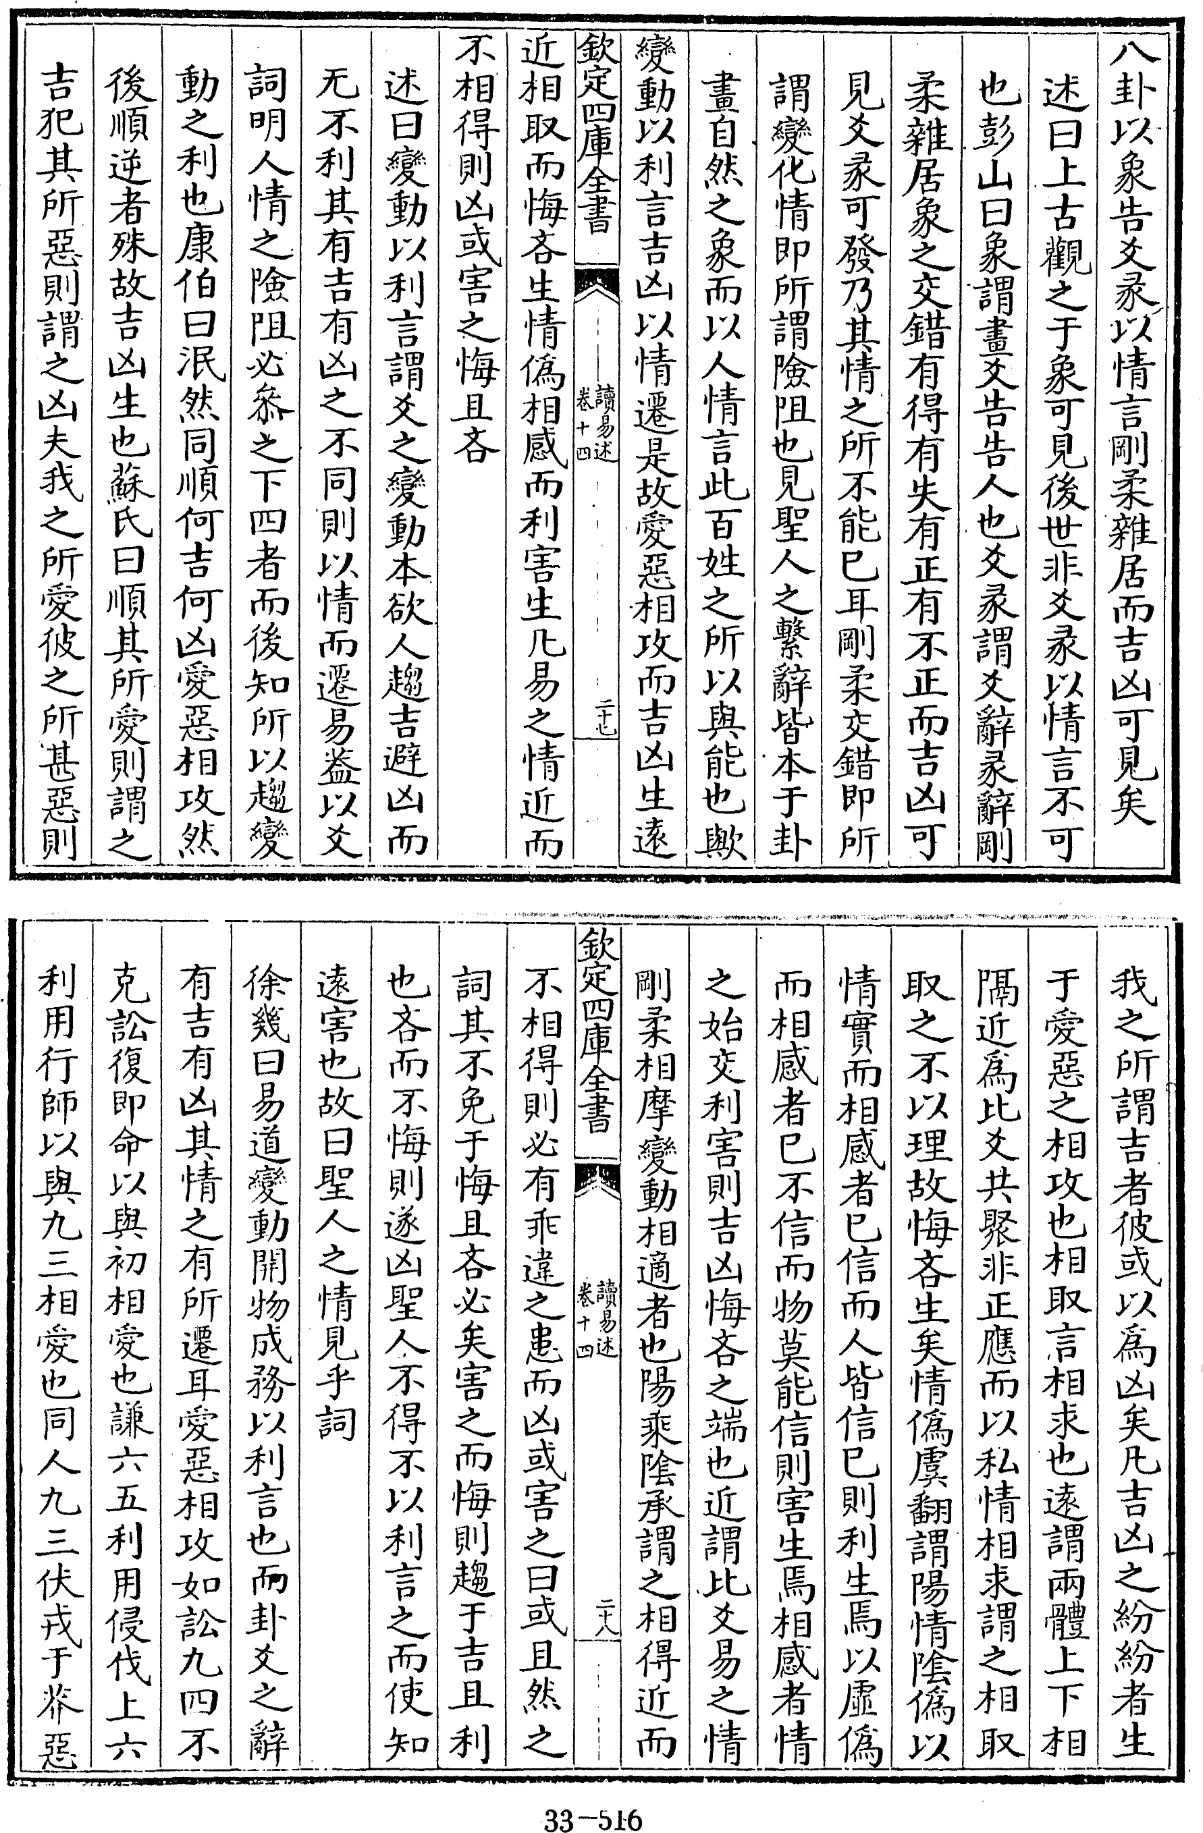 八卦以象告爻彖以情言剛柔雜居而吉凶可見矣
述曰上古觀之于象可見後世非爻彖以情言不可
也彭山曰象謂畫爻告告人也爻彖謂爻辭彖辭剛
柔雜居象之交錯有得有失有正有不正而吉凶可
見爻彖可發乃其情之所不能已耳剛柔交錯即所
謂變化情即所謂險阻也見聖人之繫辭皆本于卦
畫自然之象而以人情言此百姓之所以與能也歟
變動以利言吉凶以情遷是故愛惡相攻而吉凶生遠
欽定四庫全書
讀易述
卷十四
二十七
近相取而悔吝生情偽相感而利害生凡易之情近而
不相得則凶或害之悔且吝
述曰變動以利言謂爻之變動本欲人趨吉避凶而
无不利其有吉有凶之不同則以情而遷易葢以爻
詞明人情之險阻必叅之下四者而後知所以趨變
動之利也康伯曰泯然同順何吉何凶愛惡相攻然
後順逆者殊故吉凶生也蘇氏曰順其所愛則謂之
吉犯其所惡則謂之凶夫我之所愛彼之所甚惡則
我之所謂吉者彼或以為凶矣凡吉凶之紛紛者生
于愛惡之相攻也相取言相求也遠謂兩體上下相
隔近為比爻共聚非正應而以私情相求謂之相取
取之不以理故悔吝生矣情偽虞翻謂陽情隂偽以
情實而相感者已信而人皆信已則利生焉以虛偽
而相感者已不信而物莫能信則害生焉相感者情
之始交利害則吉凶悔吝之端也近謂比爻易之情
剛柔相摩變動相適者也陽乘隂承謂之相得近而
欽定四庫全書
讀易述
卷十四
二十八
不相得則必有乖違之患而凶或害之曰或且然之
詞其不免于悔且吝必矣害之而悔則趨于吉且利
也吝而不悔則遂凶聖人不得不以利言之而使知
遠害也故曰聖人之情見乎詞
徐幾曰易道變動開物成務以利言也而卦爻之辭
有吉有凶其情之有所遷耳愛惡相攻如訟九四不
克訟復即命以與初相愛也謙六五利用侵伐上六
利用行師以與九三相愛也同人九三伏戎于莽惡
33-516